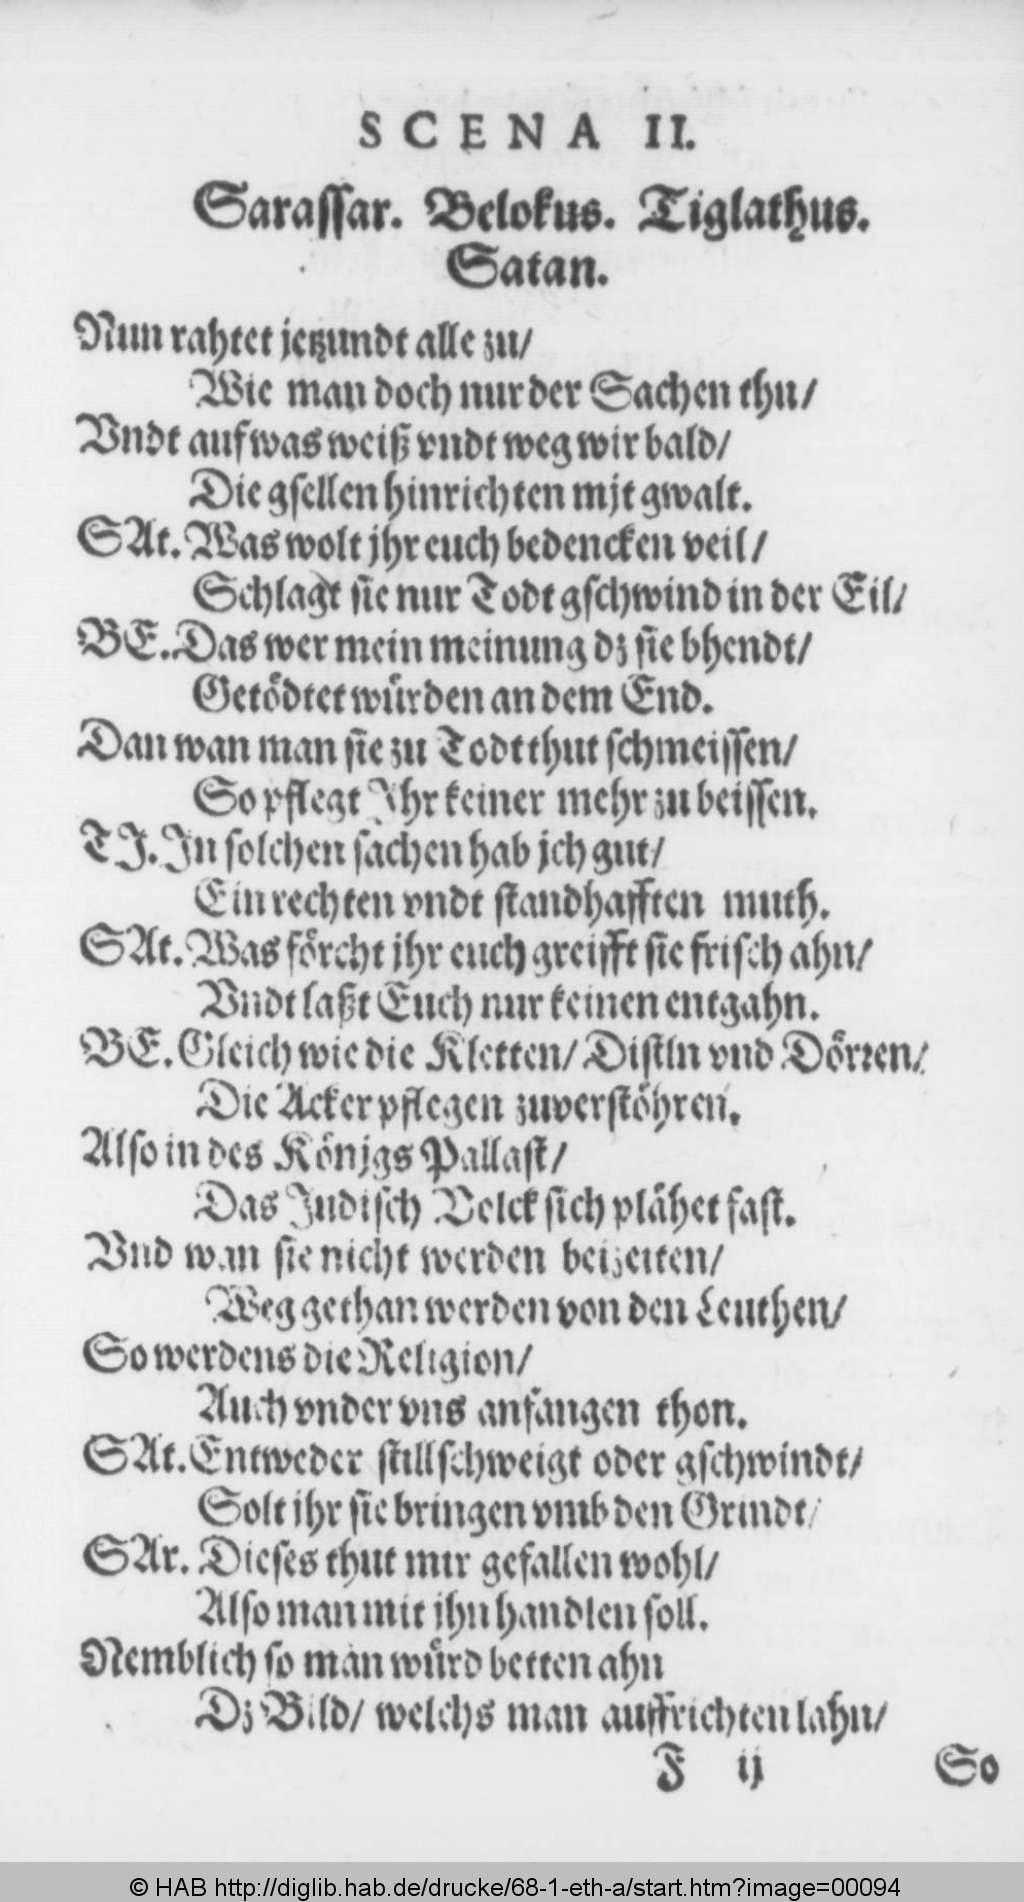 SCENA II.
Sarassar. Belokus. Tiglathus.
Satan.
Nun rahtet jetzundt alle zu/
Wie man doch nur der Sachen thu/
Vndt auf was weiß vndt weg wir bald/
Die gsellen hinrichten mjt gwalt.
SAt. Was wolt jhr euch bedencken veil/
Schlagt sie nur Todt gschwind in der Eil/
BE. Das wer mein meinung dz sie bhendt/
Getödtet würden an dem End.
Dan wan man sie zu Todt thut schmeissen/
So pflegt Ihr keiner mehr zu beissen.
TJ. In solchen sachen hab jch gut/
Ein rechten vndt standhafften muth.
SAt. Was förcht jhr euch greifft sie frisch ahn/
Vndt laßt Euch nur keinen entgahn.
BE. Gleich wie die Kletten/ Distln vnd Dörren/
Die Acker pflegen zuverstöhren.
Also in des Könjgs Pallast/
Das Judisch Volck sich plähet fast.
Vnd wan sie nicht werden beizeiten/
Weg gethan werden von den Leuthen/
So werdens die Religion/
Auch vnder vns anfangen thon.
SAt. Entweder stillschweigt oder gschwindt/
Solt jhr sie bringen vmb den Grindt/
SAr. Dieses thut mir gefallen wohl/
Also man mit jhn handlen soll.
Nemblich so man würd betten ahn
Dz Bild/ welchs man auffrichten lahn/
F ij So
© HAB http://diglib.hab.de/drucke/68-1-eth-a/start.htm?image=00094